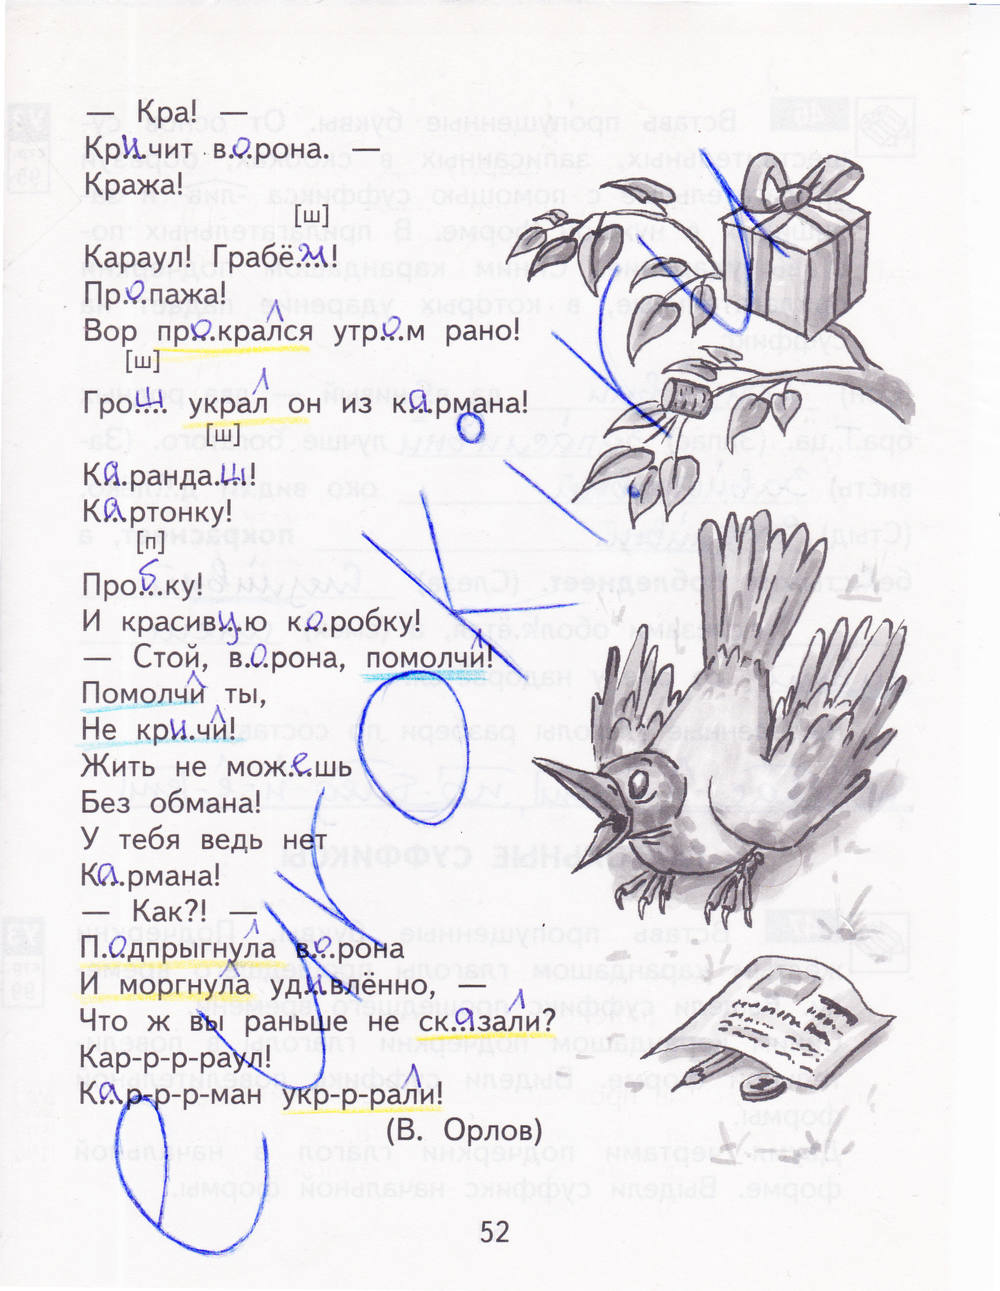 — Кра! —
Кричит ворона. —
Кража!
[ш]
Караул! Грабёж!
Пропажа!
Вор прокрался утром рано!
[ш]
Грош украл он из кармана!
[ш]
Карандаш!
Картонку!
[п]
Пробку!
И красивую коробку!
— Стой, ворона, помолчи!
Помолчи ты,
Не кричи!
Жить не можешь
Без обмана!
У тебя ведь нет
Кармана!
— Как?! —
Подпрыгнула ворона
И моргнула удивлённо, —
Что ж вы раньше не сказали?
Кар-р-р-раул!
Кар-р-р-ман укр-р-рали!
(В. Орлов)
52